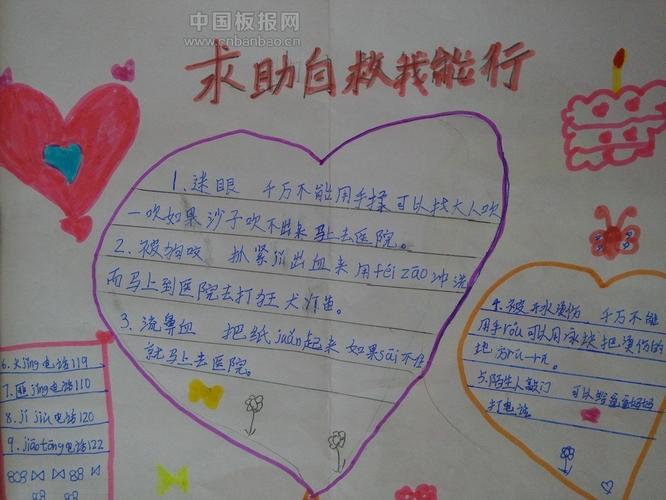 中国板报网
www.cnbanbao.cn
求助自救我能行
1.迷眼 千万不能用手揉可以找大人吹
一吹如果沙子吹不出来马上去医院。
2.被狗咬 扒紧jǐ出血来用féi zào冲洗
而马上到医院去打狂犬
3.流鼻血 把纸juǎn起来如果sāi不住
就马上去医院。
4.被 烫伤 千万不能
用手róu可以用冰块把烫伤的
地方
5.陌生人敲门 可以给爸爸妈妈
打电话。
6.火jǐng电话119
7.匪jǐng电话110
8.jí jiù电话120
9.jiāo tōng电话122